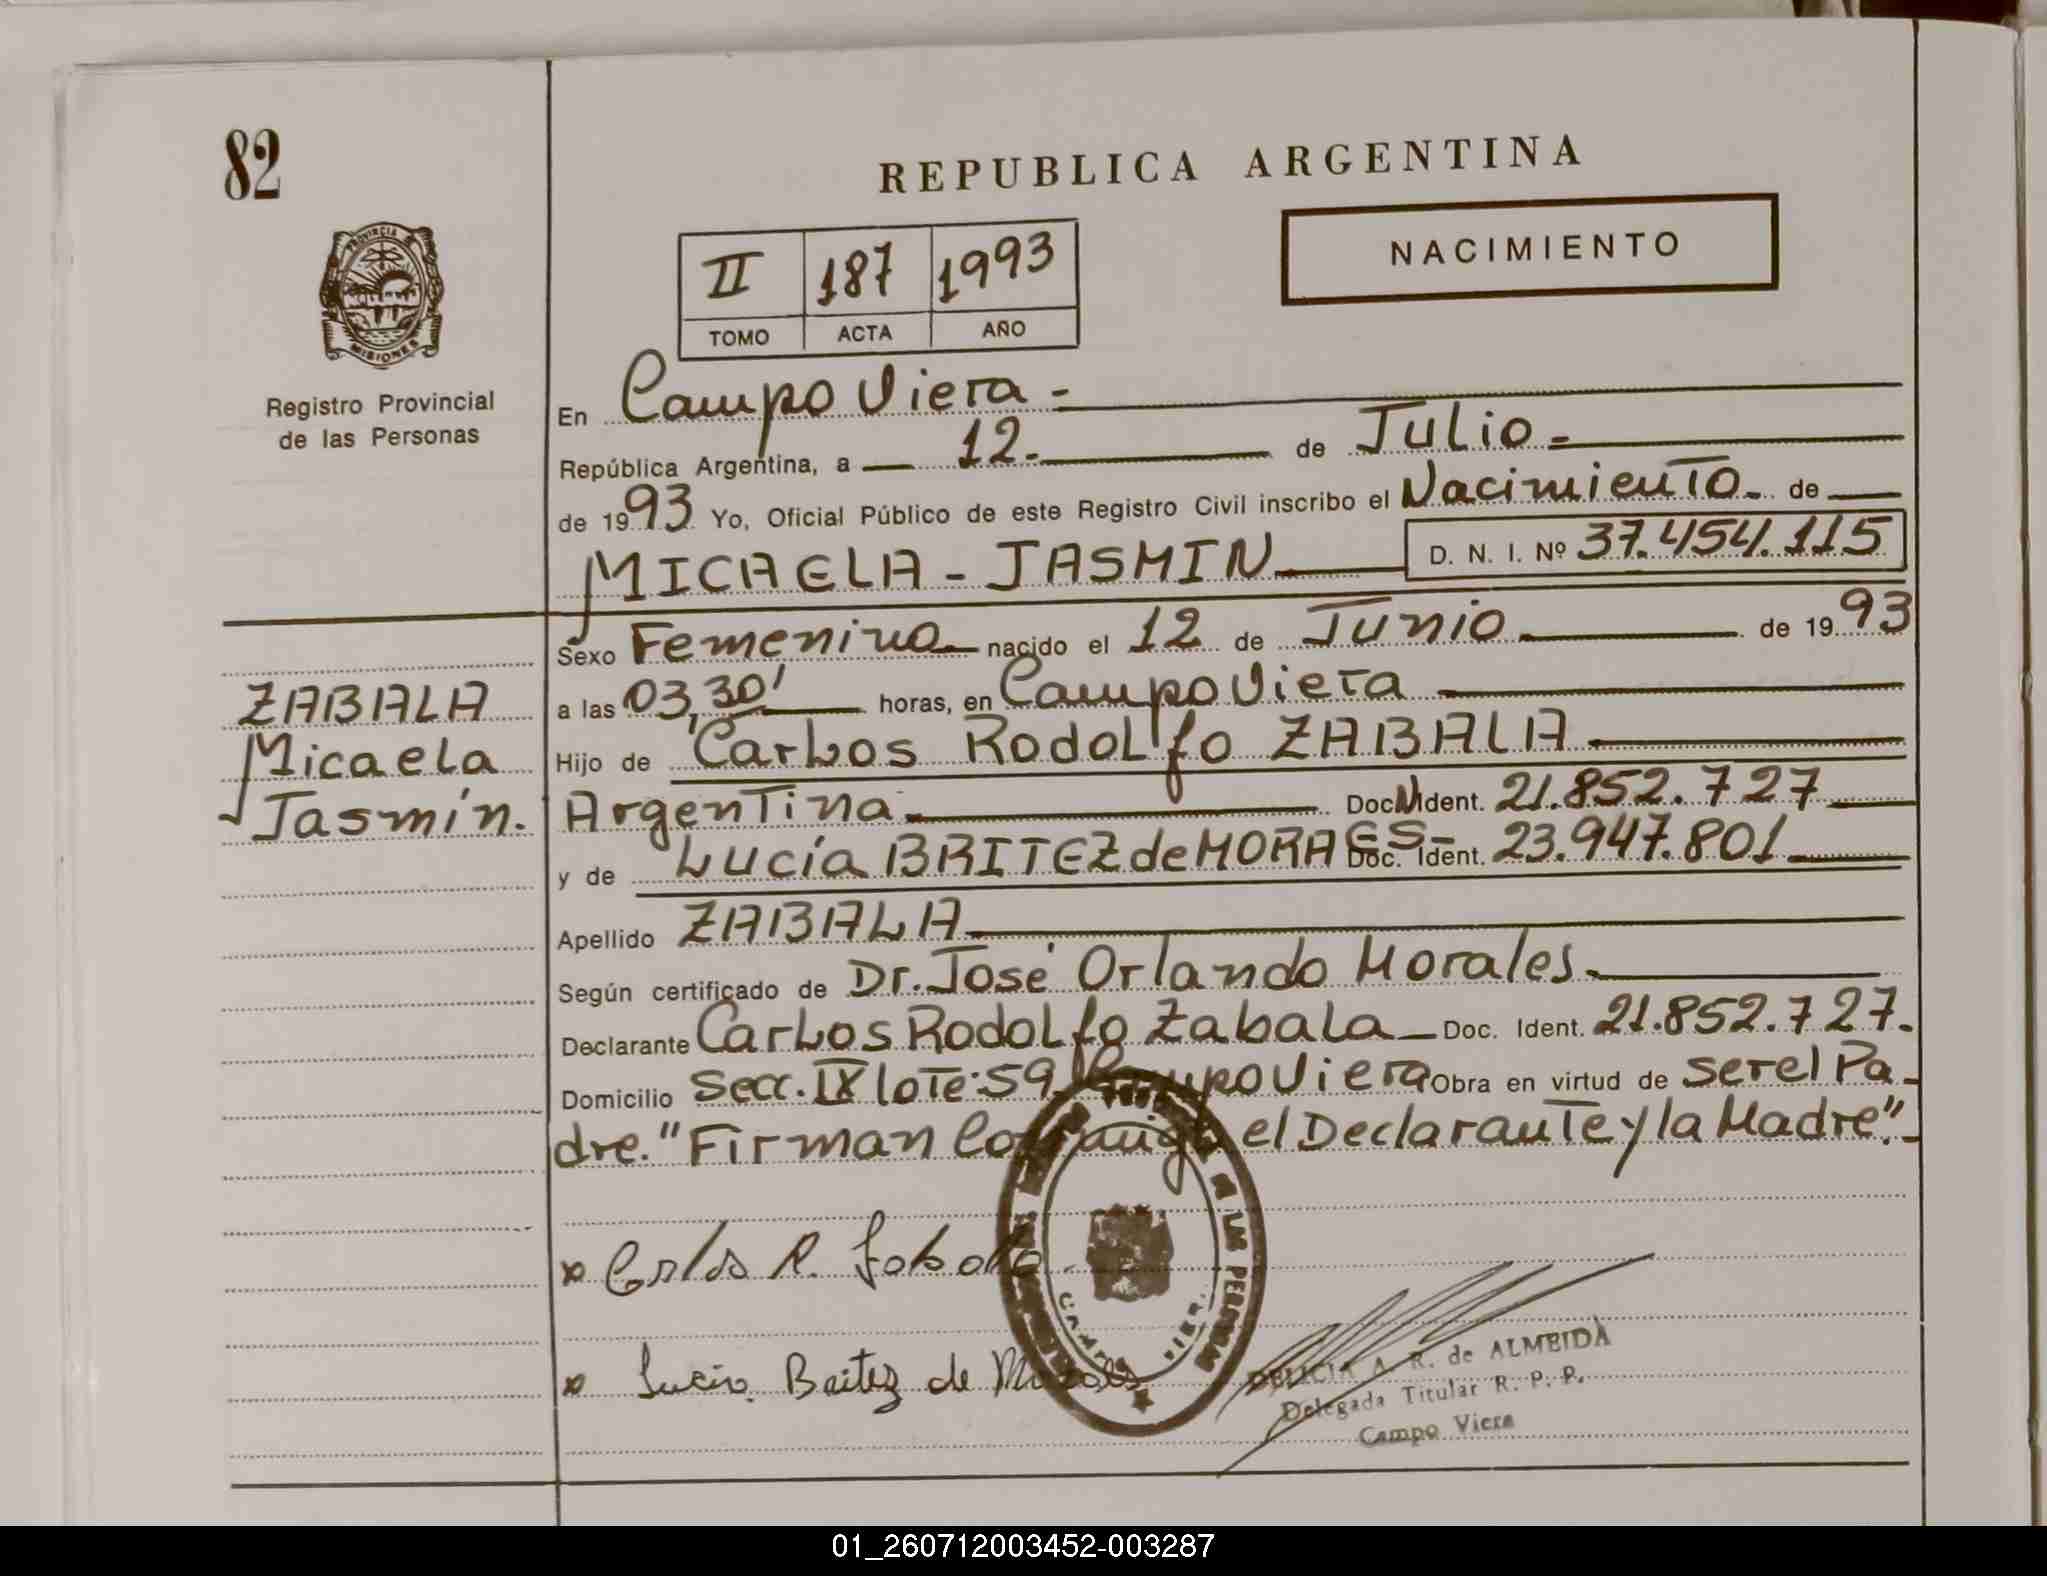 82
REPUBLICA ARGENTINA
PROVINCIA
MISIONES
Registro Provincial
de las Personas
II 187 1993
TOMO ACTA AÑO
NACIMIENTO
En Campo Viera -
República Argentina, a 12. de Julio.
de 1993 Yo, Oficial Público de este Registro Civil inscribo el Nacimiento de
MICAELA - JASMIN D. N. I. Nº 37.454.115
Sexo Femenino nacido el 12 de Junio de 1993
a las 03,30' horas, en Campo Viera
Hijo de Carlos Rodolfo ZABALA
Argentina Doc. Ident. 21.852.727
y de Lucía BRITEZ de MORAES- Doc. Ident. 23.947.801
Apellido ZABALA
Según certificado de Dr. José Orlando Morales.
Declarante Carlos Rodolfo Zabala Doc. Ident. 21.852.727.
Domicilio Secc. IX lote: 59 Campo Viera Obra en virtud de ser el Pa-
dre. "Firman Conmigo el Declarante y la Madre".
ZABALA
Micaela
Jasmín.
Carlos R. Zabala
Lucia Britez de Moraes
CAMPO VIERA
DELICIA A. R. de ALMEIDA
Delegada Titular R. P. P.
Campo Viera
01_260712003452-003287